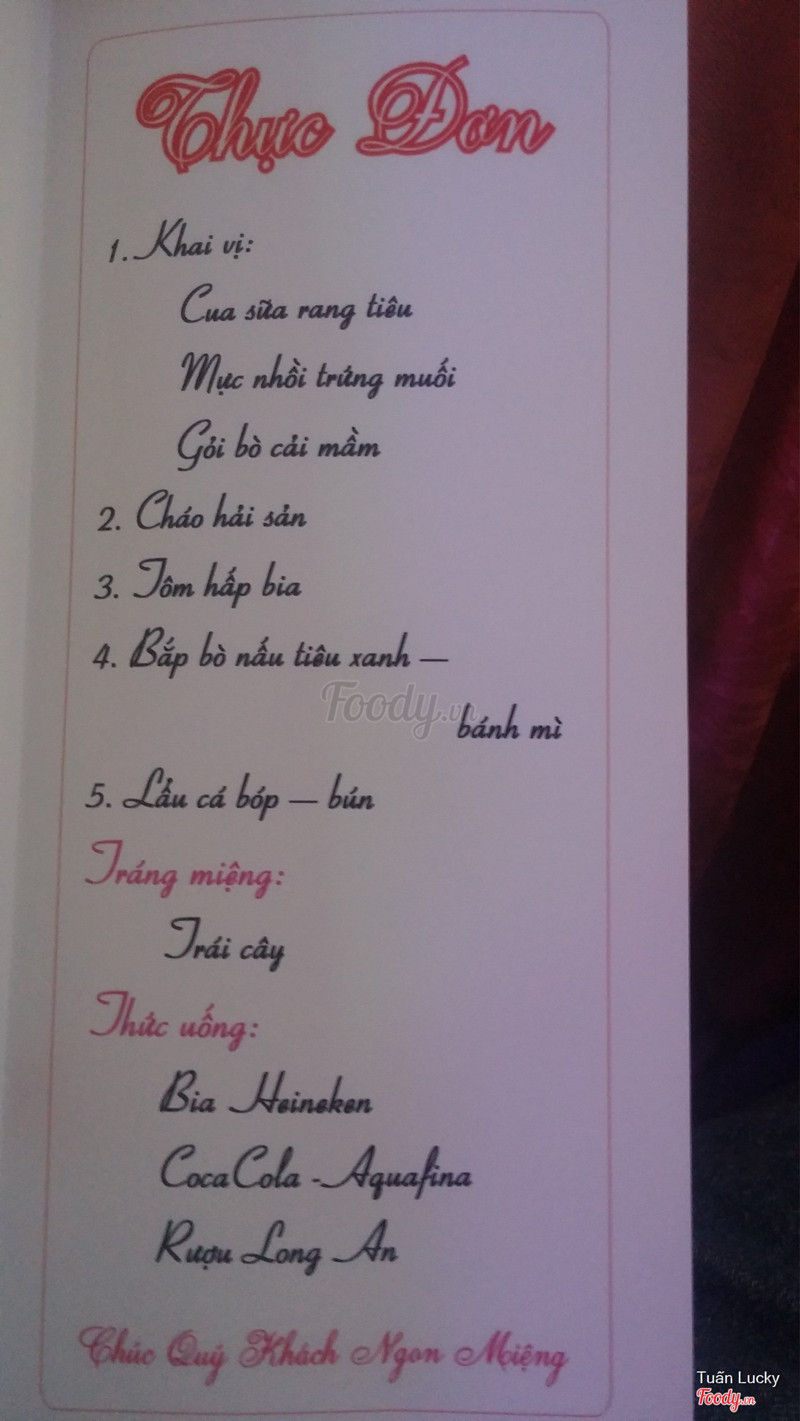 Thực Đơn
1. Khai vị:
Cua sữa rang tiêu
Mực nhồi trứng muối
Gỏi bò cải mầm
2. Cháo hải sản
3. Tôm hấp bia
4. Bắp bò nấu tiêu xanh —
Foody.vn
bánh mì
5. Lẩu cá bóp — bún
Tráng miệng:
Trái cây
Thức uống:
Bia Heineken
CocaCola - Aquafina
Rượu Long An
Chúc Quý Khách Ngon Miệng
Tuấn Lucky
Foody.vn